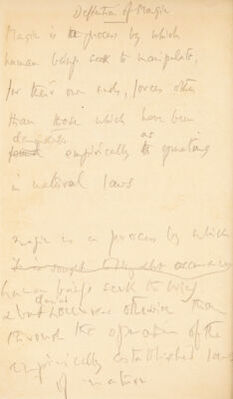 Definition of Magic
Magic is a process by which
human beings seek to manipulate,
for their own ends, forces other
than those which have been
demonstrated as
empirically operating
in natural laws
magic is a process by which
human beings seek to bring
about otherwise than
through the operation of the
empirically established laws
of nature